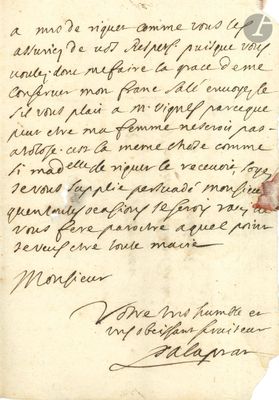 a mrs de riquet comme vous les
assuriez de nos respers puisque vous
voulez donc me faire la grace de me
conserver mon franc salé envoyez le
sil vous plait a Mr Vignes parceque
peut etre ma femme ne seroit pas
a tolose. cest la meme chose comme
si madelle de riquet le recevoit, soyez
je vous supplie persuadé monsieur
quen toutes ocasions je serois ravi de
vous fere paroitre a quel point
je veus etre toute ma vie
Monsieur
Votre tres humble et
tres obeissant serviteur
Palaprat